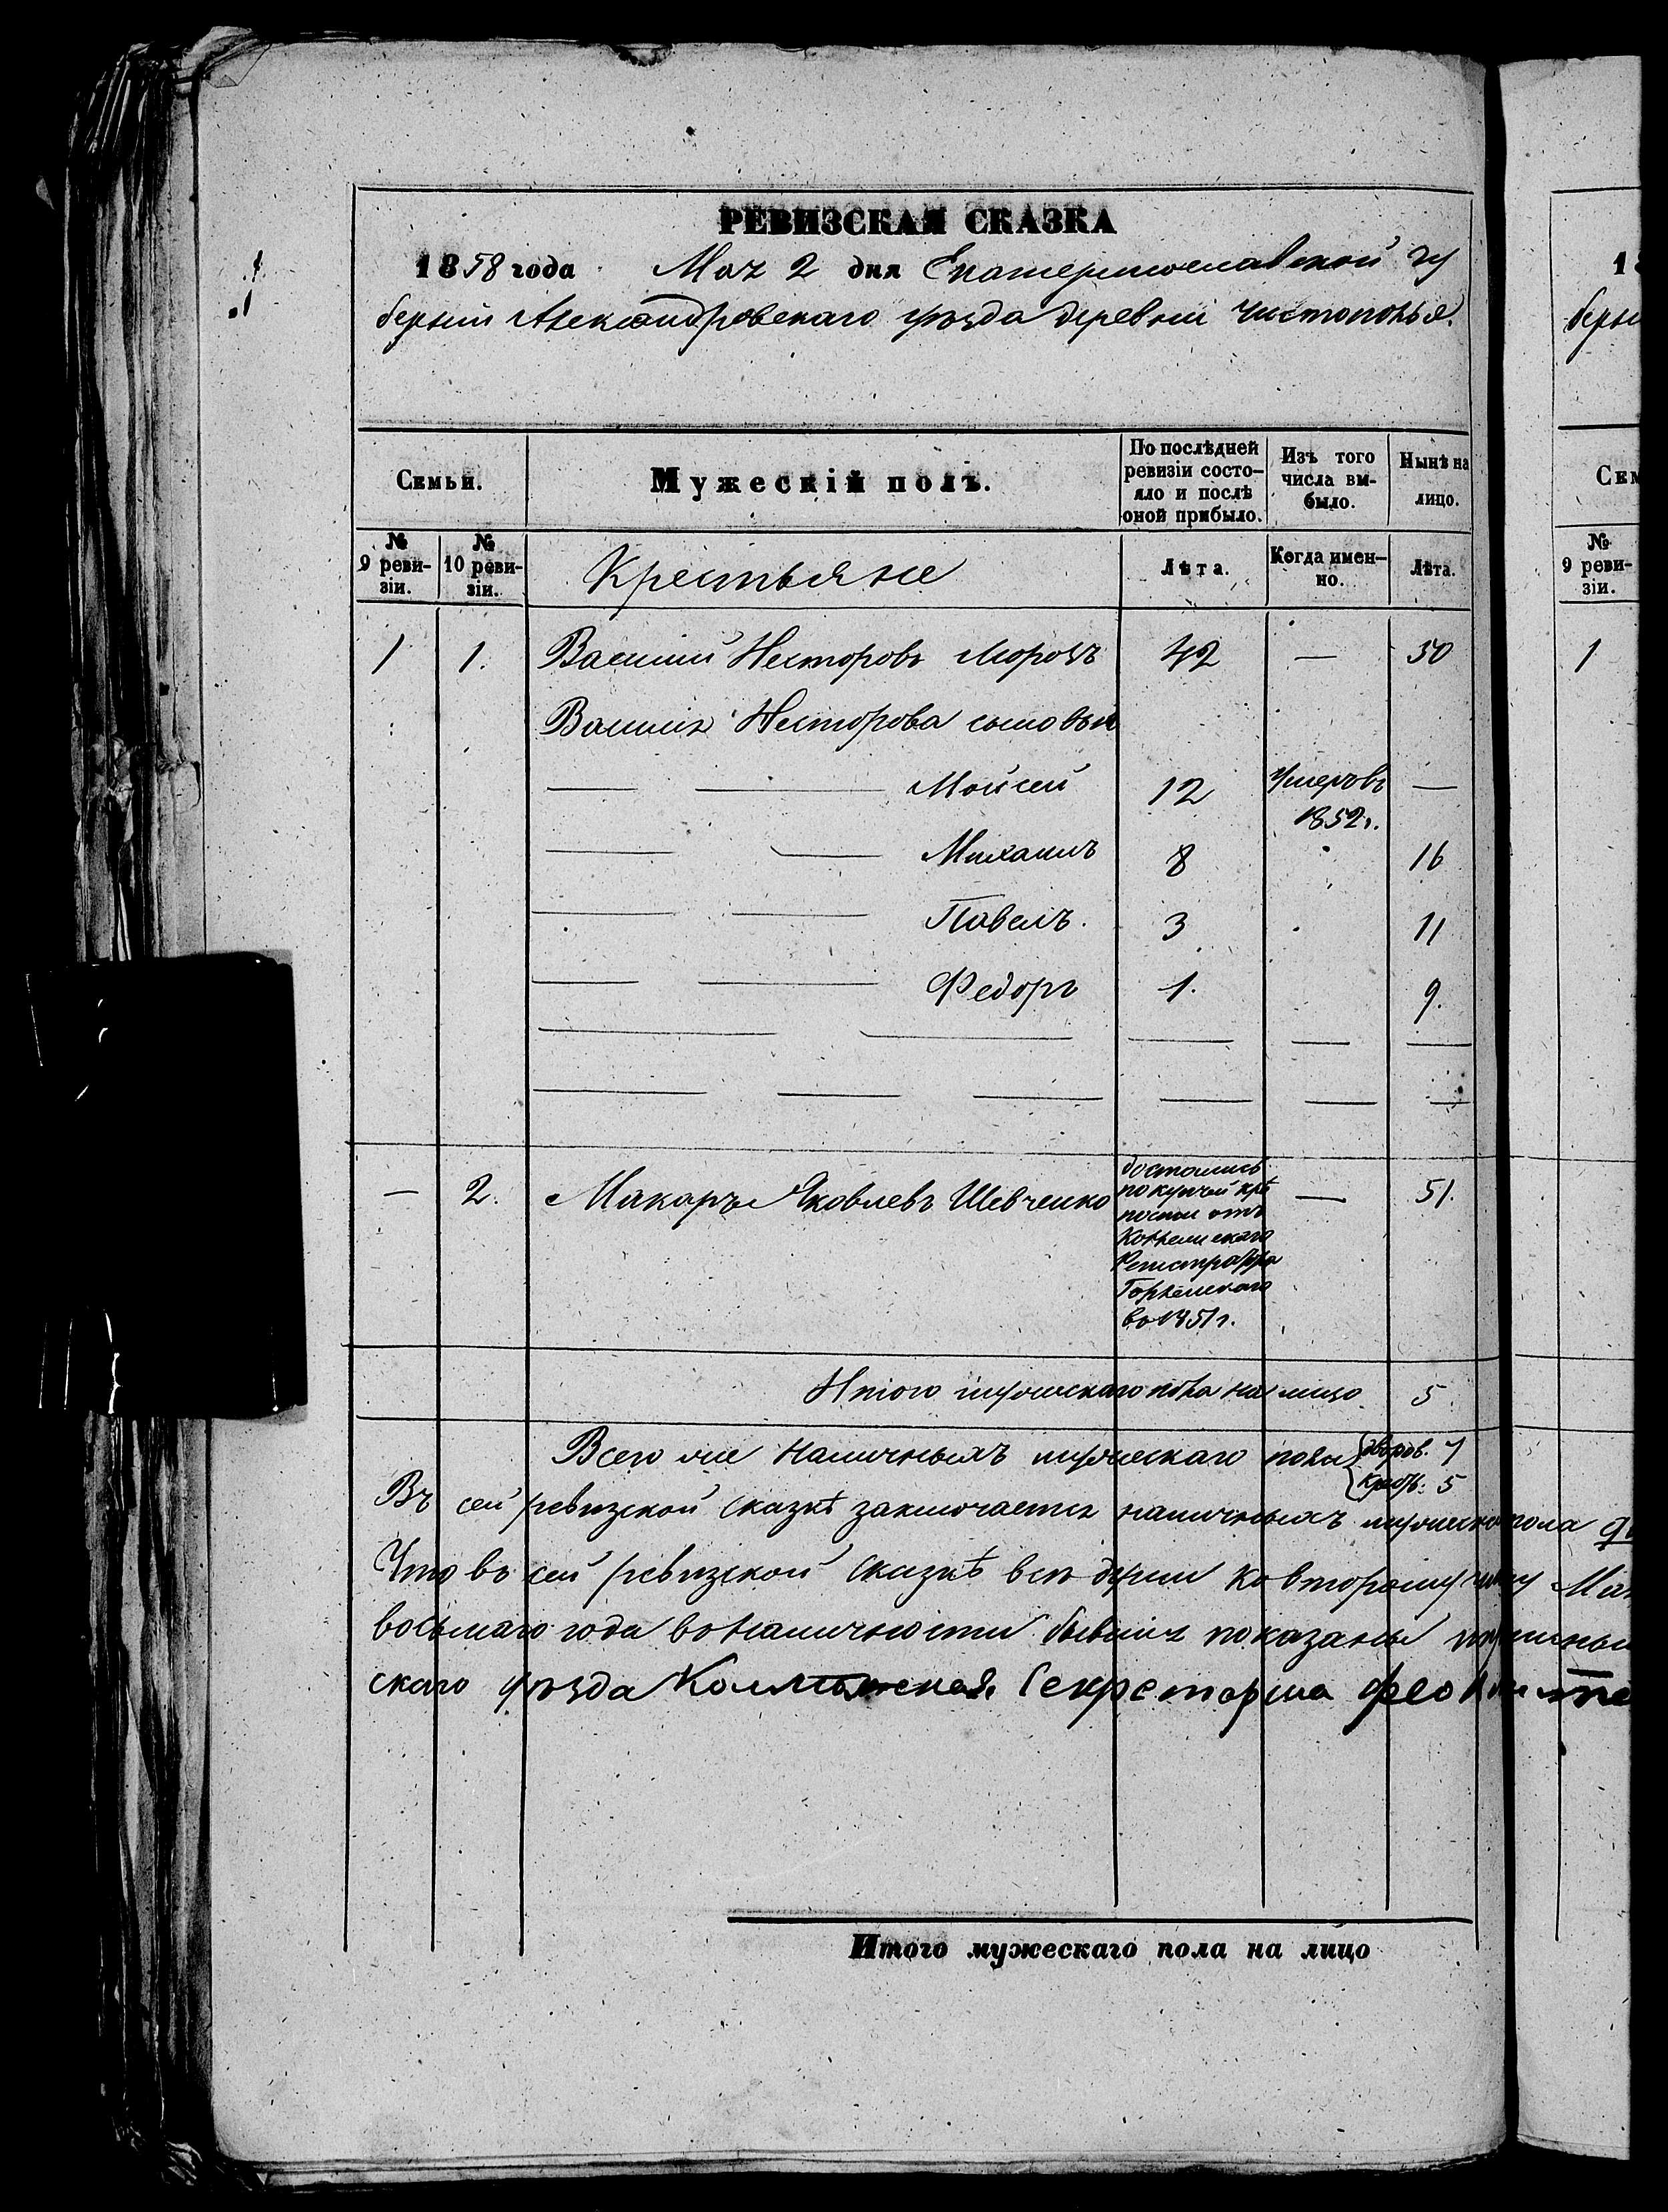 РЕВИЗСКАЯ СКАЗКА
1858 года Мая 2 дня Екатеринославской гу
берніи Александровскаго уѣзда деревни Чистополья.
Семьи. Мужескій полъ. По послѣдней ревизіи состояло и послѣ оной прибыло. Изъ того числа выбыло. Нынѣ на лицо.
№ 9 ревизіи. № 10 ревизіи. Крестьяне Лѣта. Когда именно. Лѣта.
1 1. Василий Несторовъ Морозъ 42 — 50
Василия Несторова сыновья
Мойсей 12 Умеръ въ 1852 г. —
Михаилъ 8 16
Павелъ. 3 11
Федоръ 1. 9.
— 2. Макаръ Яковлевъ Шевченко — 51.
достались
по купчей крѣ
пости отъ
Регистратора
во 1851 г.
Итого мужескаго пола на лицо 5
Всего же наличныхъ мужескаго пола дворов. 4
крест. 5
Въ сей ревизской сказкѣ заключается наличныхъ мужеска пола
Что въ сей ревизской сказкѣ всѣ души ко второму числу
восьмаго года въ наличности бывшия показаны
скаго уѣзда Секретарша
Итого мужескаго пола на лицо
1
бер
Сем
№
9 реви-
зіи.
1